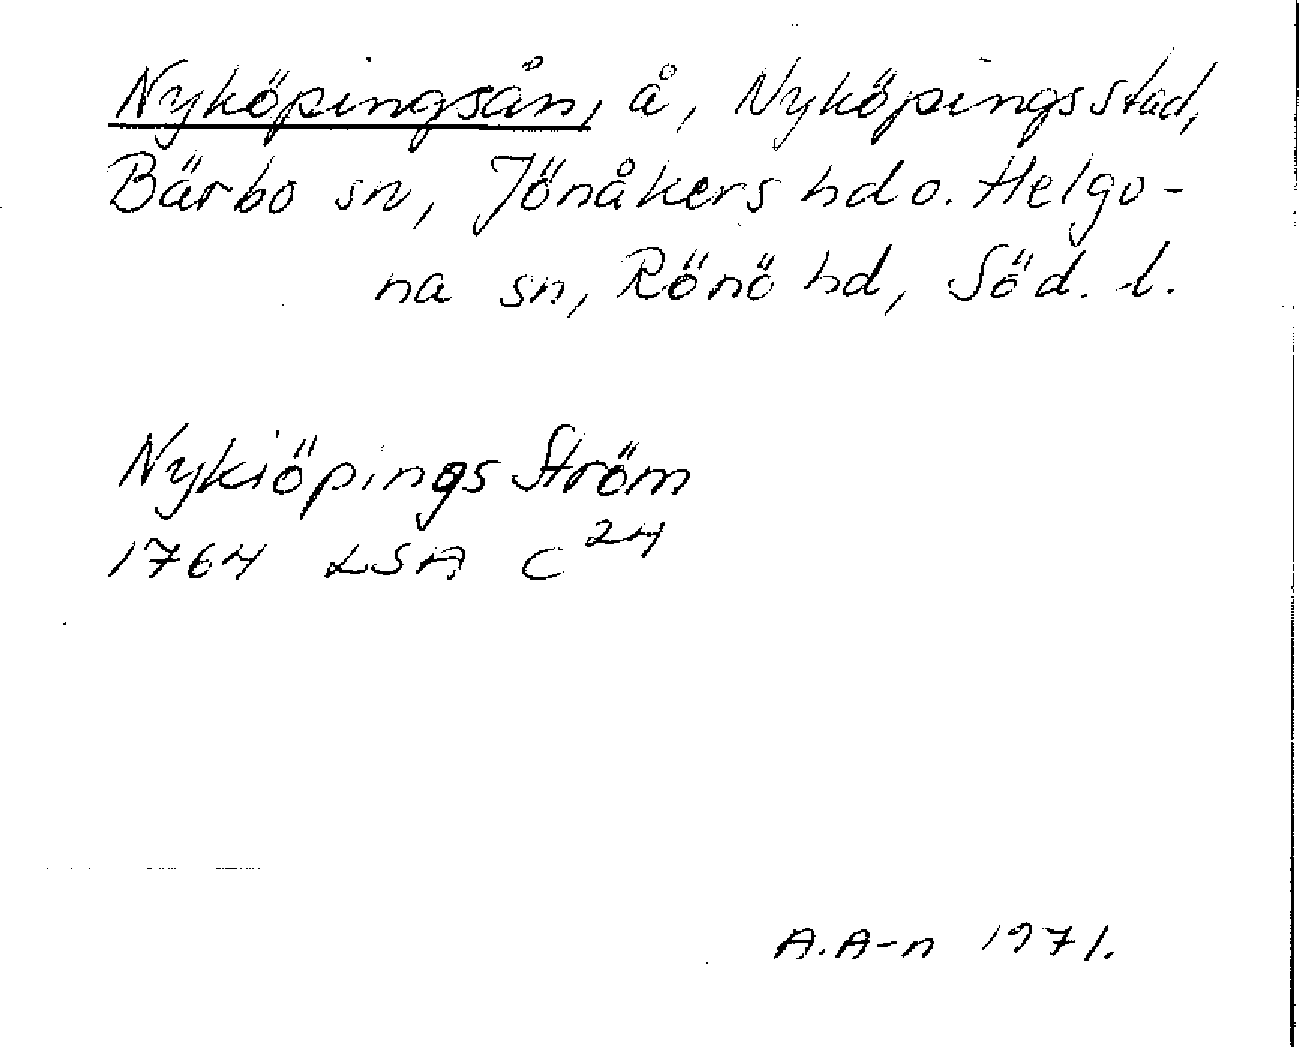 Nyköpingsån, å, Nyköpings stad,
Bärbo sn, Jönåkers hd o. Helgo-
na sn, Rönö hd, Söd. l.
Nykiöpings Ström
1764 LSA C 24
A.A-n 1971.